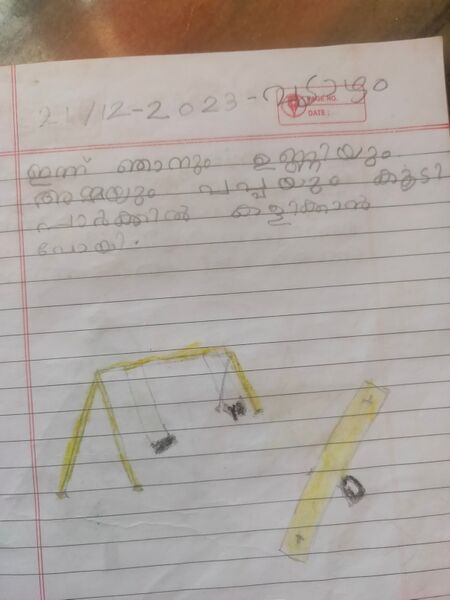 21/12-2023-വ്യാഴം
PAGE NO.
DATE :
ഇന്ന് ഞാനും ഉണ്ണിയും
അമ്മയും പപ്പയും കൂടി
പാർക്കിൽ കളിക്കാൻ
പോയി.